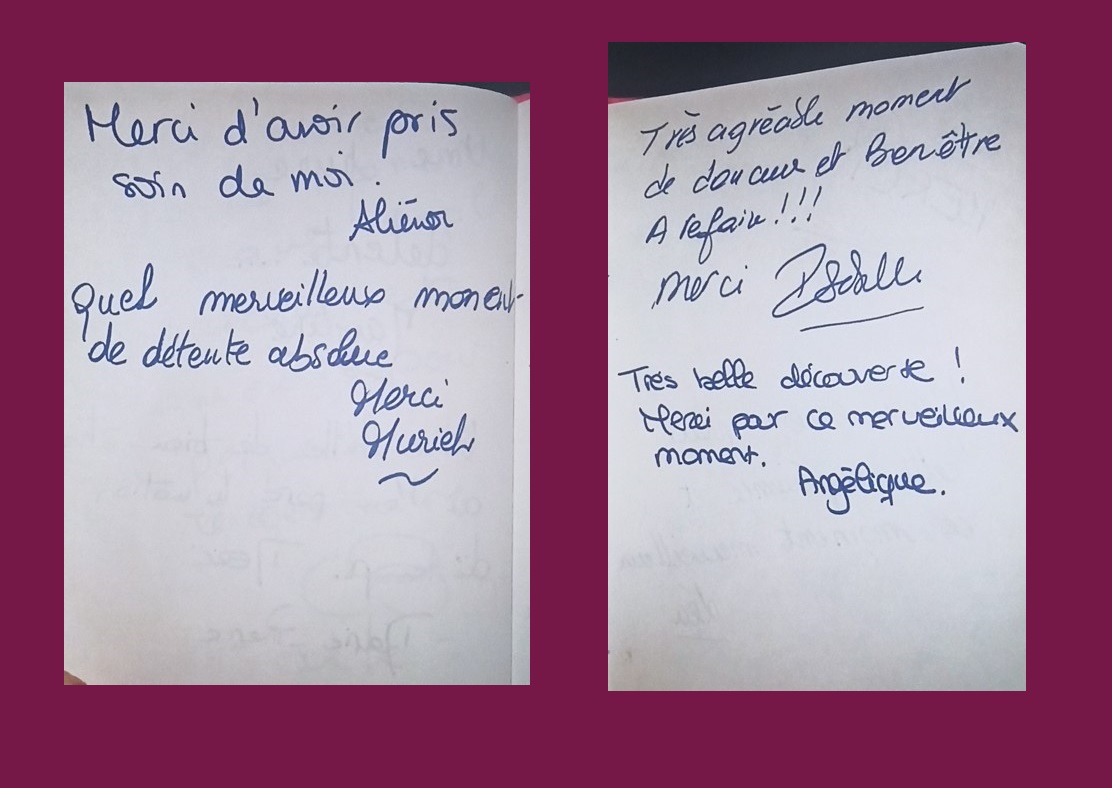 Merci d'avoir pris
soin de moi.
Aliénor
Quel merveilleux moment
de détente absolue
Merci
Muriel
Très agréable moment
de douceur et Bien être
A refaire !!!
Merci
Très belle découverte !
Merci pour ce merveilleux
moment.
Angélique.